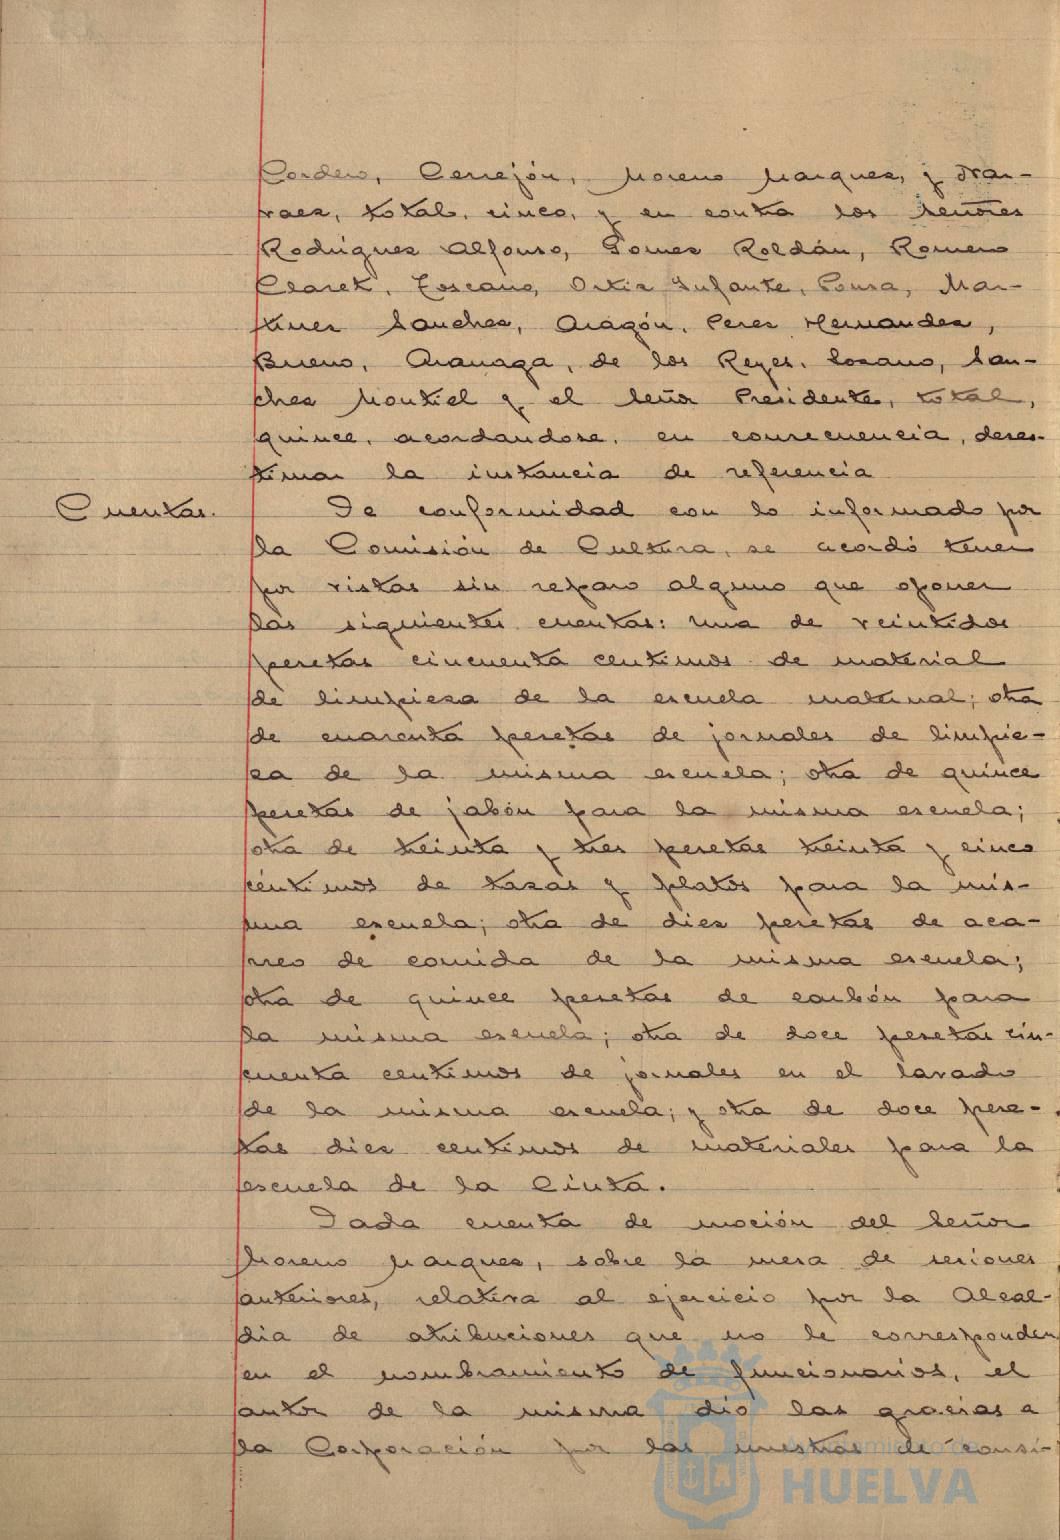 Cordero, Cerrejón, Moreno Marquez, y Nar-
vaez, total, cinco, y en contra los señores
Rodriguez Alfonso, Gomez Roldán, Romero
Claret, Toscano, Ortiz Infante, Ponsa, Mar-
tinez Sanchez, Aragón, Perez Hernandez,
Bueno, Aranaga, de los Reyes, Lozano, San-
chez Montiel y el Señor Presidente, total,
quince, acordandose, en consecuencia, deses-
timar la instancia de referencia
Cuentas.
De conformidad con lo informado por
la Comisión de Cultura, se acordó tener
por vistas sin reparo alguno que oponer
las siguientes cuentas: una de veintidos
pesetas cincuenta centimos de material
de limpieza de la escuela maternal; otra
de cuarenta pesetas de jornales de limpie-
za de la misma escuela; otra de quince
pesetas de jabón para la misma escuela;
otra de treinta y tres pesetas treinta y cinco
céntimos de tazas y platos para la mis-
ma escuela; otra de diez pesetas de aca-
rreo de comida de la misma escuela;
otra de quince pesetas de carbón para
la misma escuela; otra de doce pesetas cin-
cuenta centimos de jornales en el lavado
de la misma escuela; y otra de doce pese-
tas diez centimos de materiales para la
escuela de la Cinta.
Dada cuenta de moción del Señor
Moreno Marquez, sobre la mesa de sesiones
anteriores, relativa al ejercicio por la Alcal-
dia de atribuciones que no le corresponden
en el nombramiento de funcionarios, el
autor de la misma dió las gracias a
la Corporación por las muestras de consi-
Ayuntamiento de
HUELVA